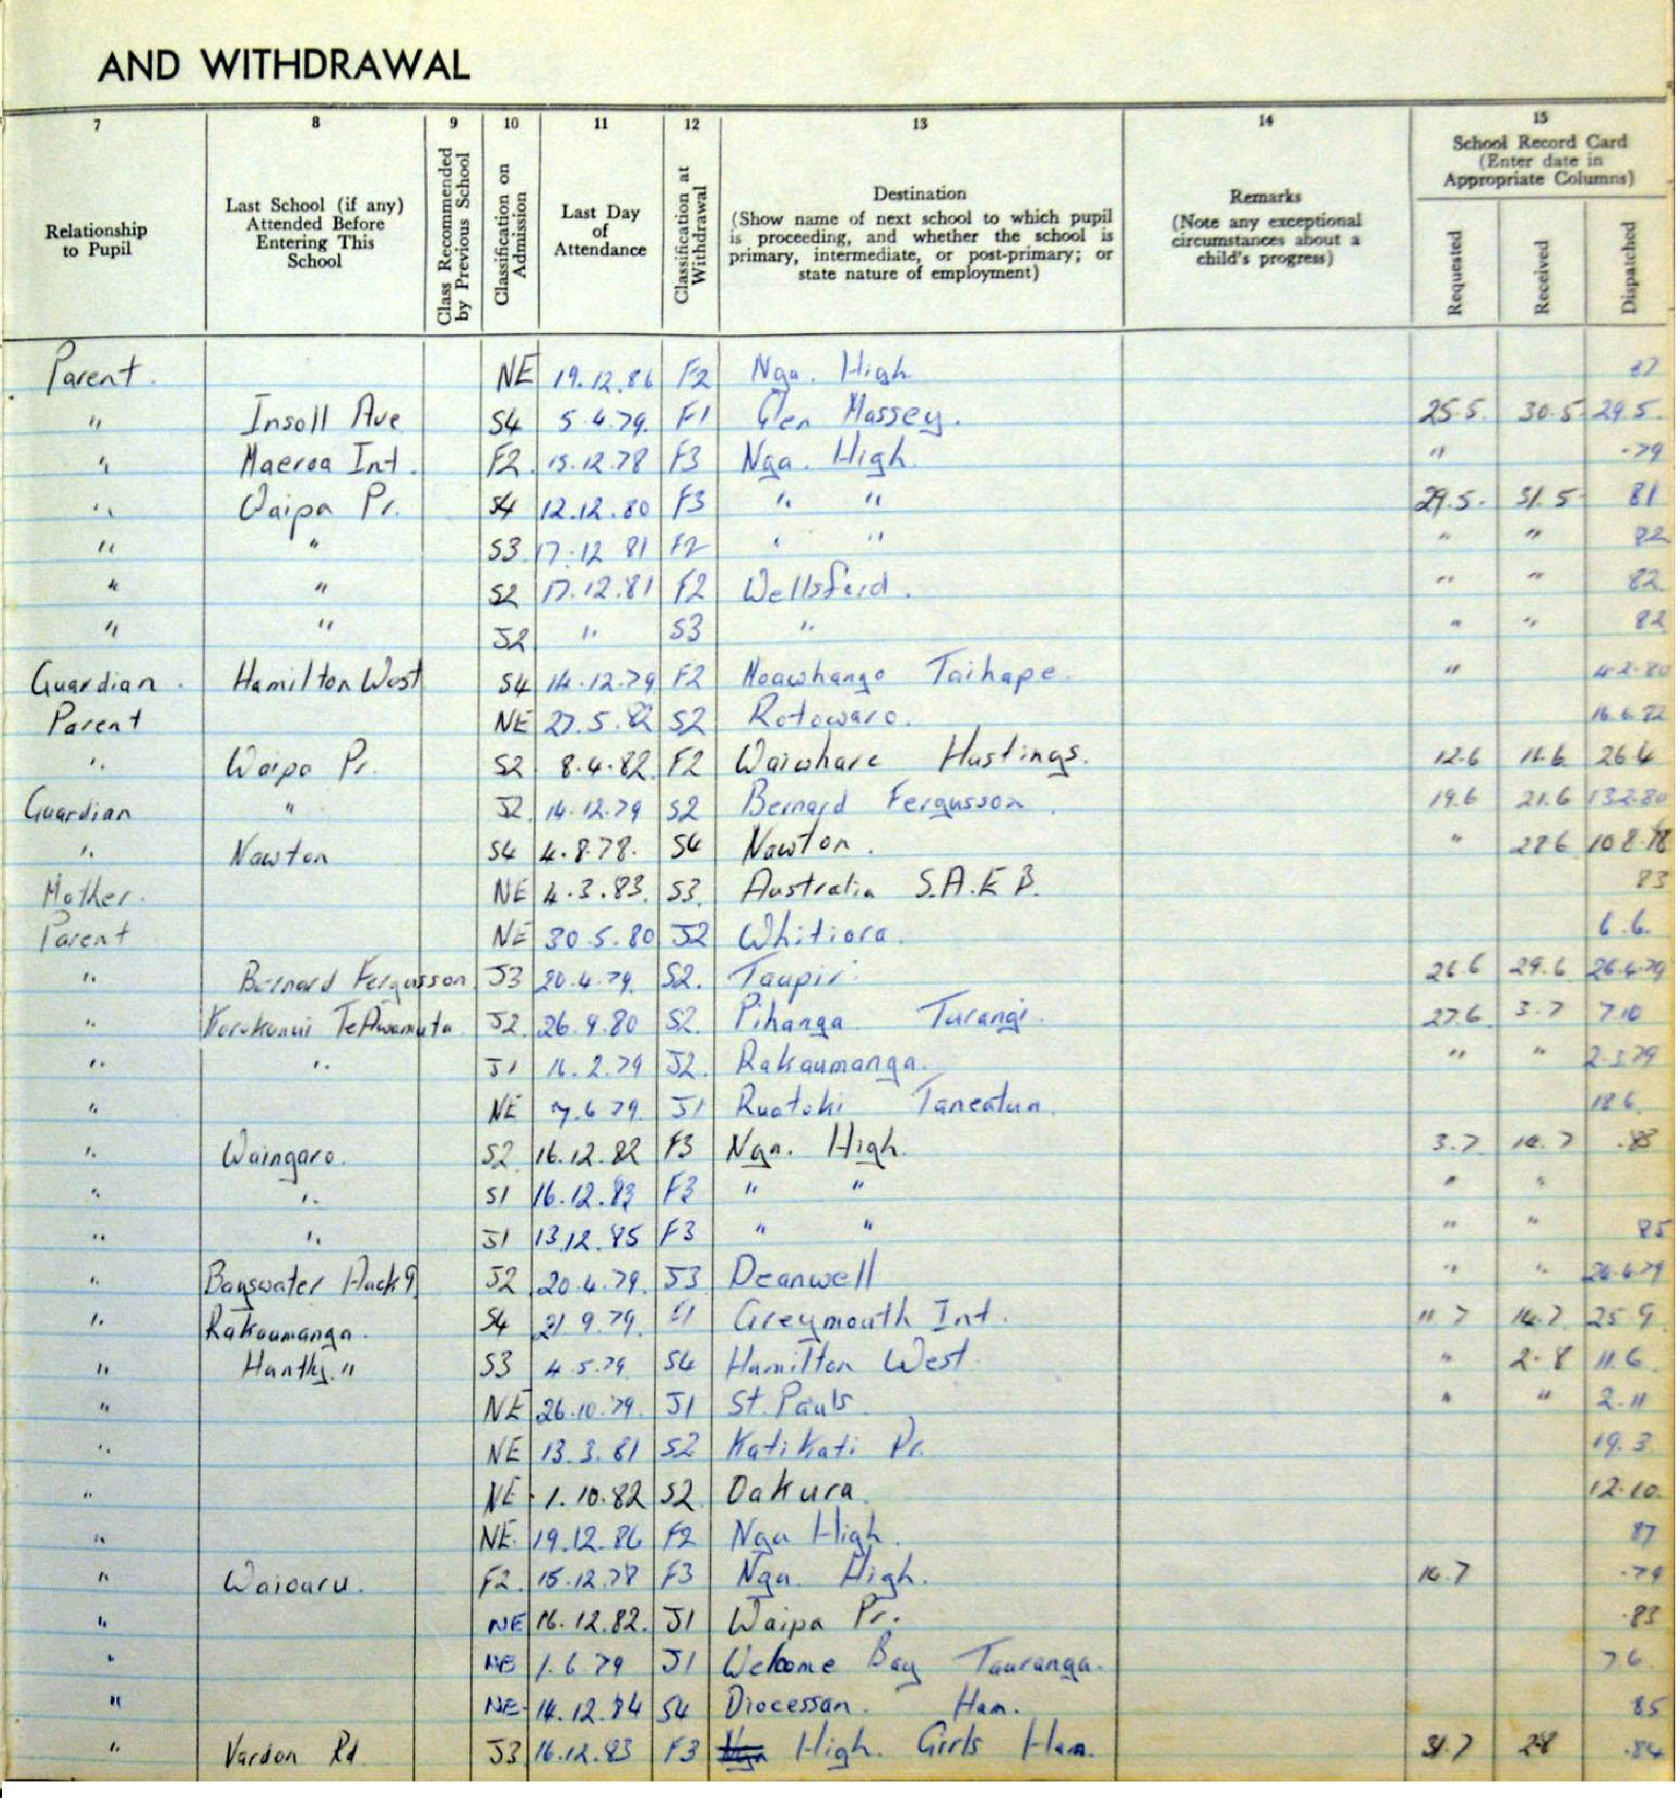 AND WITHDRAWAL
7 8 9 10 11 12 13 14 15
Relationship to Pupil
Last School (if any) Attended Before Entering This School
Class Recommended by Previous School
Classification on Admission
Last Day of Attendance
Classification at Withdrawal
Destination
(Show name of next school to which pupil
is proceeding, and whether the school is
primary, intermediate, or post-primary; or
state nature of employment)
Remarks
(Note any exceptional
circumstances about a
child's progress)
School Record Card
(Enter date in
Appropriate Columns)
Requested Received Dispatched
Parent. NE 19.12.86 F2 Nga. High 87
" Insoll Ave S4 5.4.79. F1 Glen Massey. 25.5. 30.5 29.5.
" Maeroa Int. F2. 15.12.78 F3 Nga. High. " .79
" Waipa Pr. S4 12.12.80 F3 " " 29.5. 31.5 81
" " S3 17.12 81 F2 " " " " 82
" " S2 17.12.81 F2 Wellsford. " " 82
" " J2 " S3 " " " 82
Guardian. Hamilton West S4 14.12.79 F2 Moawhango Taihape. " 4.2.80
Parent NE 27.5.82 S2 Rotowaro. 16.6.82
" Waipa Pr. S2 8.4.82. F2 Waiwhare Hastings. 12.6 16.6 26.4
Guardian " J2 14.12.79 S2 Bernard Fergusson. 19.6 21.6 13.2.80
" Nawton S4 4.8.78. S4 Nawton. " 27.6 10.8.78
Mother. NE 4.3.83. S3. Australia S.A.E B. 83
Parent NE 30.5.80 J2 Whitiora. 6.6.
" Bernard Fergusson J3 20.4.79. S2. Taupiri. 26.6 29.6 26.4.79
" Korakonui TeAwamutu. J2. 26.9.80 S2. Pihanga Turangi. 27.6. 3.7 7.10
" " J1 16.2.79 J2. Rakaumanga. " " 2.3.79
" NE 7.6.79. J1 Ruatoki Taneatua. 18.6.
" Waingaro. S2 16.12.82 F3 Nga. High. 3.7. 10.7 .83
" " S1 16.12.83 F3 " " " "
" " J1 13.12.85 F3 " " " " 85
" Bayswater Auck 9 J2 20.4.79. J3 Deanwell " " 26.4.79
" Rakaumanga. S4 21.9.79. F1 Greymouth Int. 11.7 14.7. 25.9.
" Huntly. " S3 4.5.79. S4 Hamilton West. " 2.8 11.6.
" NE 26.10.79. J1 St. Pauls. " " 2.11
" NE 13.3.81 S2 Katikati Pr. 19.3.
" NE 1.10.82 S2. Oakura. 12.10.
" NE. 19.12.86 F2 Nga High. 87
" Waiouru. F2. 15.12.78 F3 Nga. High. 10.7 .79
" NE 16.12.82. J1 Waipa Pr. .83
" NE 1.6.79 J1 Welcome Bay Tauranga. 7.6.
" NE. 14.12.84 S4 Diocessan. Ham. 85
" Vardon Rd J3 16.12.83 F3 Nga High. Girls Ham. 31.7 2.8 .84